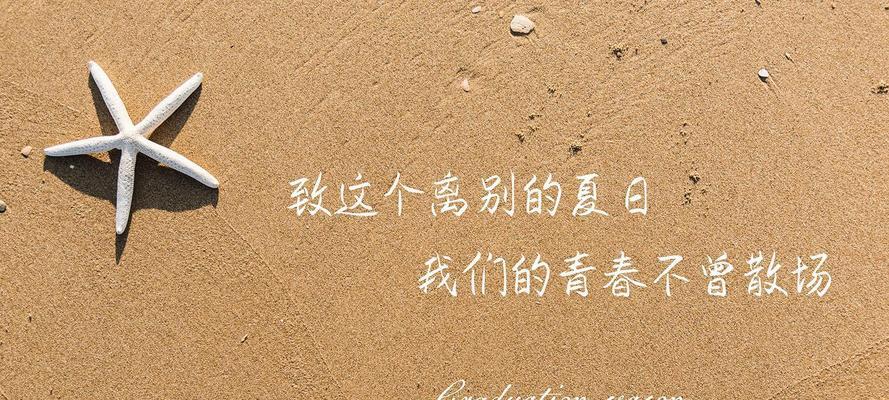 致这个离别的夏日
我们的青春不曾散场
Graduation season